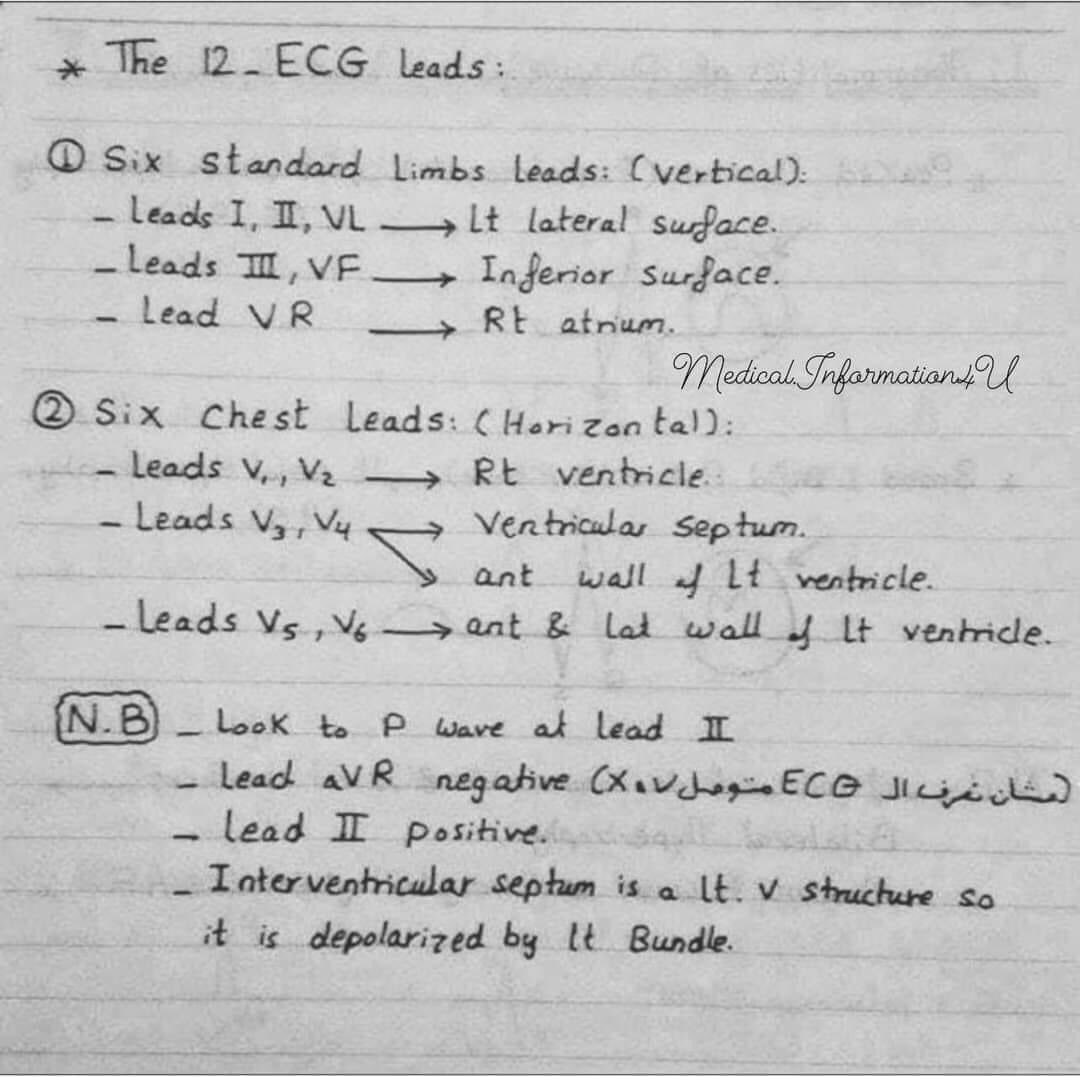 * The 12-ECG leads:
① Six standard Limbs leads: (vertical):
- Leads I, II, VL → Lt lateral surface.
- Leads III, VF → Inferior surface.
- Lead VR → Rt atrium.
Medical.Information4U
② Six Chest Leads: (Horizontal):
- Leads V₁, V₂ → Rt ventricle.
- Leads V₃, V₄ → Ventricular septum.
↘ ant wall of Lt ventricle.
- Leads V₅, V₆ → ant & Lat wall of lt ventricle.
N.B - Look to P wave at lead II
- Lead aVR negative (علشان نعرف الـ ECG متوصل √ or X)
- lead II positive.
- Interventricular septum is a lt. v structure so
it is depolarized by lt Bundle.